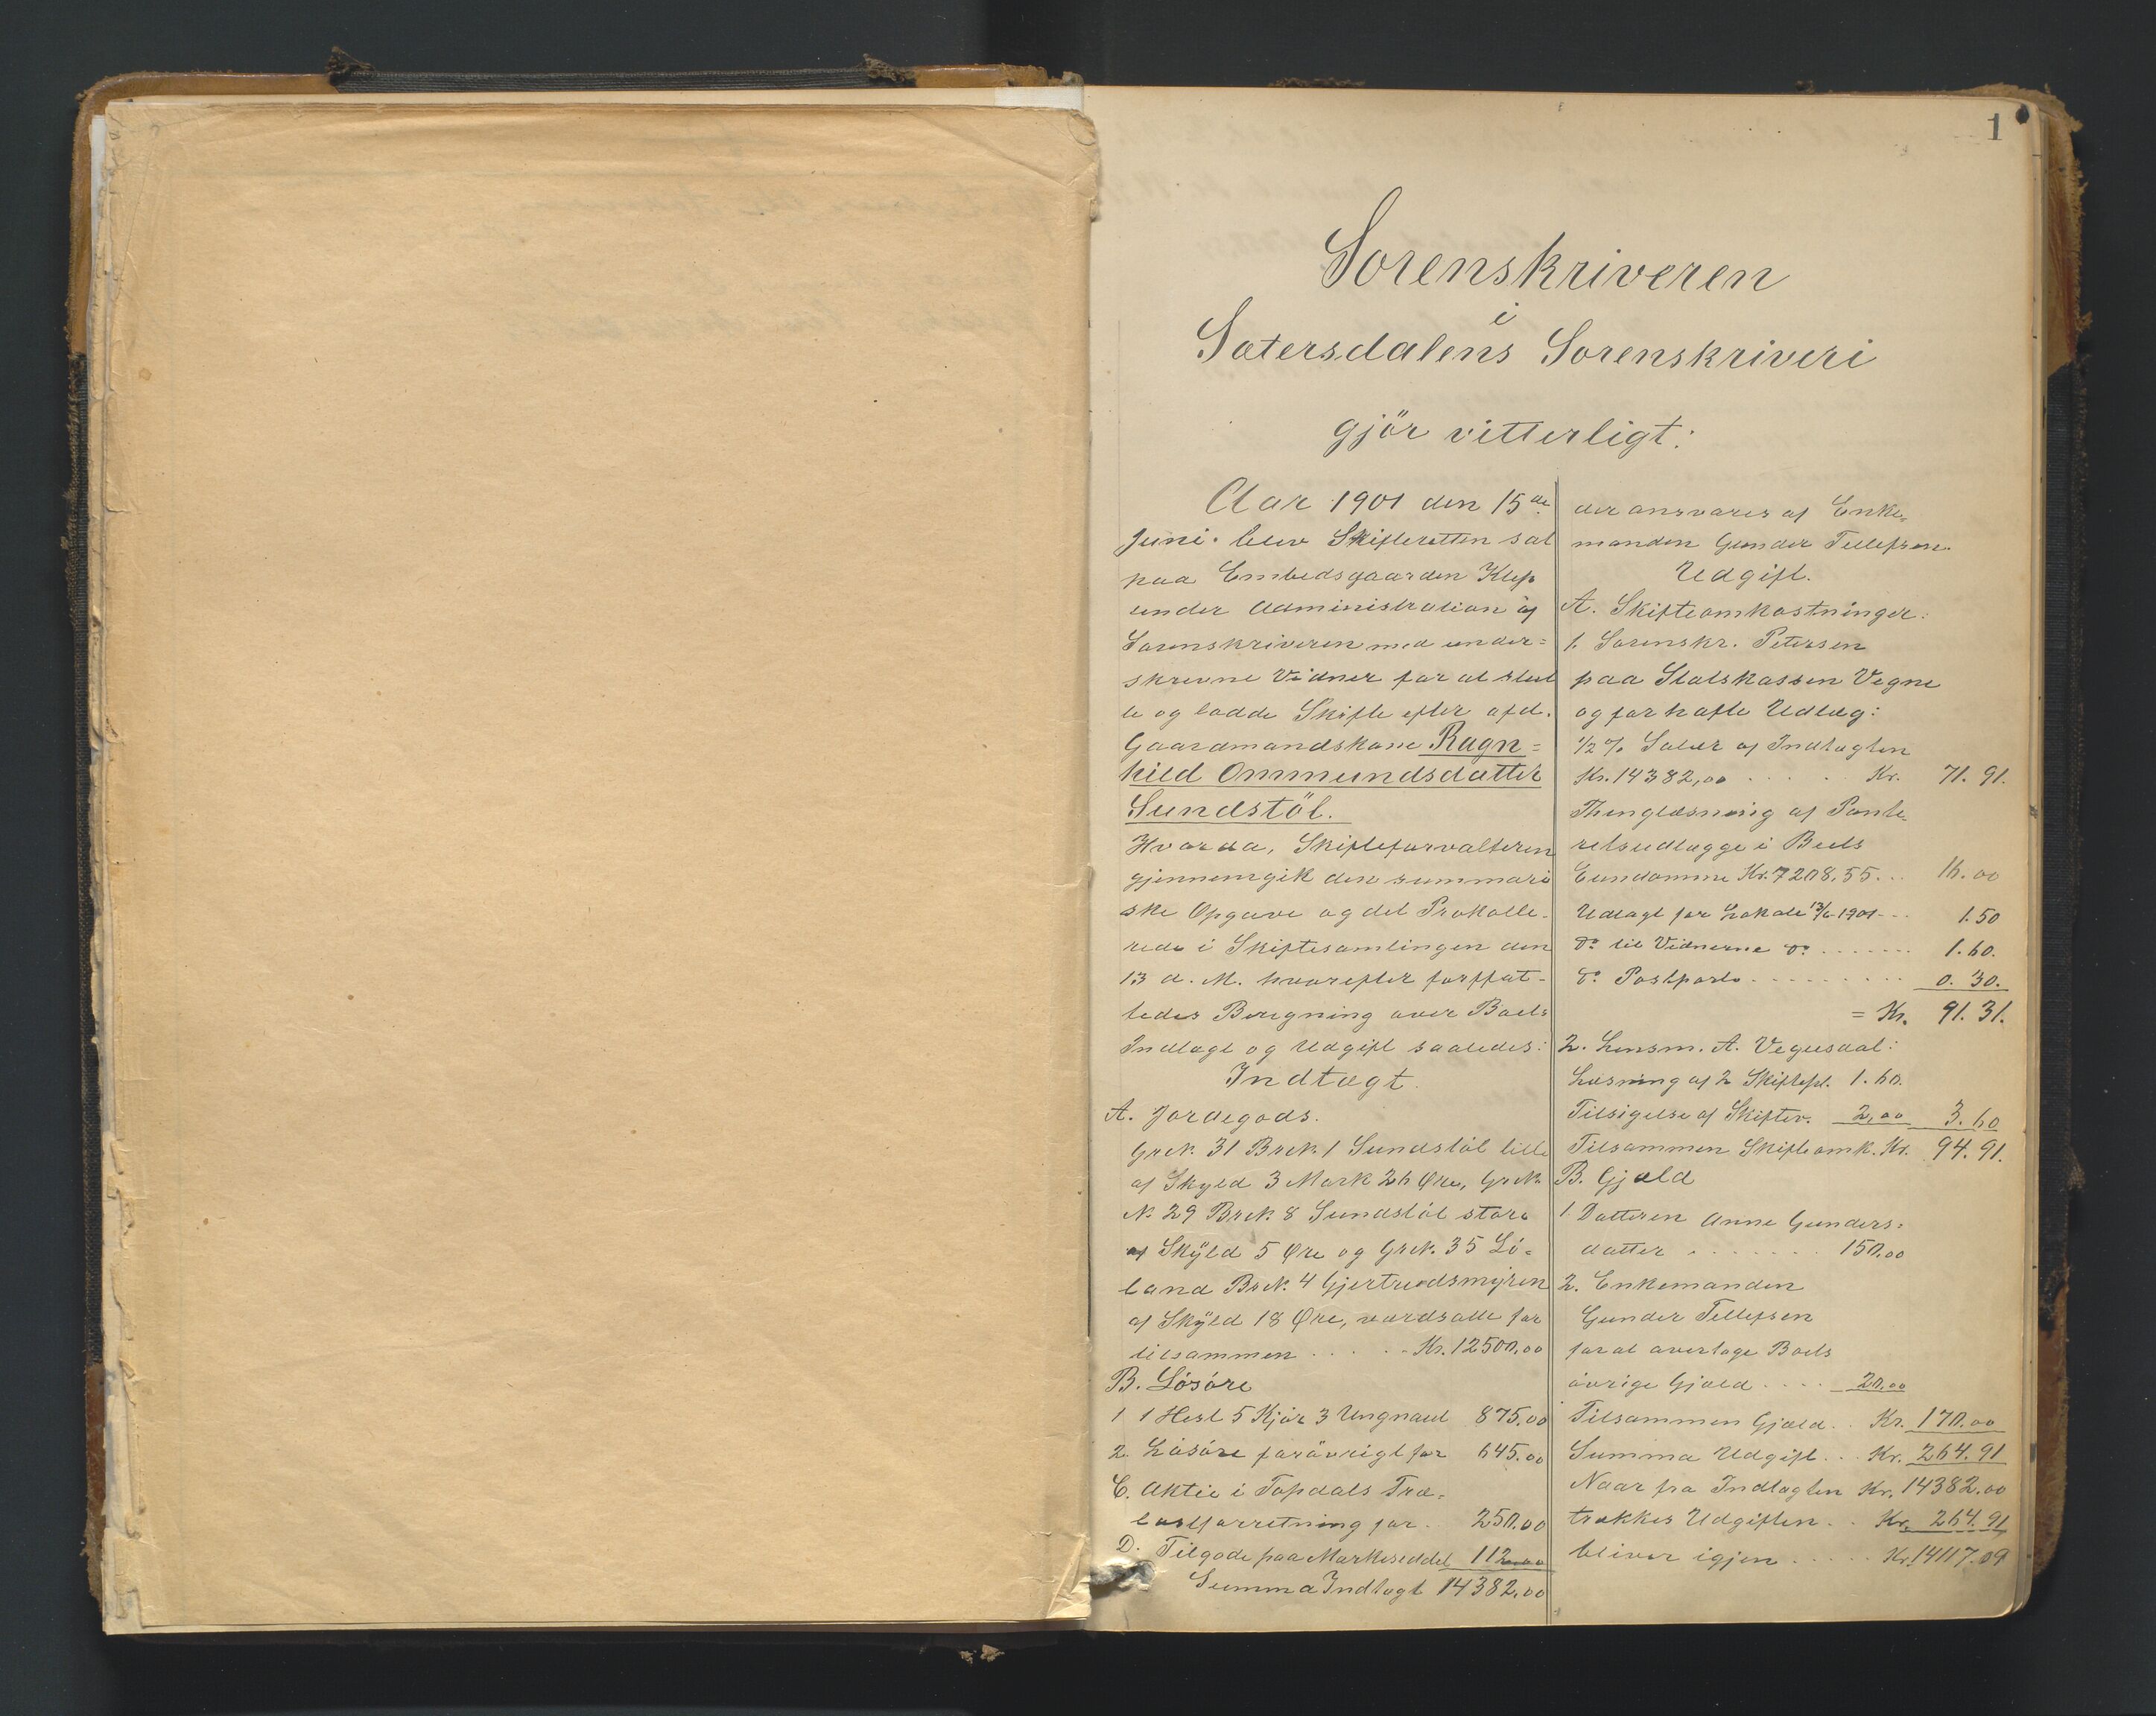 1
Sorenskriveren
i
Sætersdalens Sorenskriveri
gjör vitterligt:
Aar 1901 den 15de
Juni blev Skifteretten sat
paa Embedsgaarden Klep
under Administration af
Sorenskriveren med under=
skrevne Vidner for at slut
te og lodde Skifte efter afd.
Gaardmandskone Ragn=
hild Ommundsdatter
Sundstöl.
Hvorda, Skifteforvalteren
gjennemgik den summari
ske Opgave og det Protokolle-
rede i Skiftesamlingen den
13 d. M. hvorefter forffat-
tedes Beregning over Boets
Indtægt og Udgift saaledes:
Indtægt.
A. Jordegods.
Grek. 31 Brek. 1 Sundstöl lille
af Skyld 3 Mark 26 Øre, Grek.
N. 29 Brek. 8 Sundstöl store
af Skyld 5 Øre og Grek. 35 Lö=
land Brek. 4 Gjertrudsmyren
af Skyld 18 Øre, værdsatte for
tilsammen . . . . . Kr. 12500,00
B. Lösöre
1 1 Hest 5 Kjör 3 Ungnaut 875.00
2. Lösöre forövrigt for 645.00
C. Aktie i Topdals Træ=
lastforretning for. 250.00
D. Tilgode paa Markeseddel 112.00
Summa Indtægt 14382,00
der ansvares af Enke=
manden Gunder Tellefsen.
Udgift.
A. Skifteomkostninger:
1. Sorenskr. Petersen
paa Statskassen Vegne
og for hafte Udlæg:
1/2 % Salær af Indtægten
Kr. 14382,00 . . . . . Kr. 71. 91.
Thinglæsning af Pante-
retsudlægge i Boets
Eiendomme Kr. 7208.55 . . . 16.00
Udlagt for Lokale 13/6 1901 - - - 1.50
Do til Vidnerne do . . . . . . . 1.60.
Do Postporto . . . . . . . . . 0. 30.
= Kr. 91. 31.
2. Lensm. A. Vegusdal:
Læsning af 2 Skiftepl. 1.60.
Tilsigelse af Skiftev. 2,00 3.60
Tilsammen Skifteomk. Kr. 94.91.
B. Gjæld
1. Datteren Anne Gunders=
datter . . . . . . . 150.00
2. Enkemanden
Gunder Tellefsen
for at overtage Boets
övrige Gjæld . . . . 20.00
Tilsammen Gjæld. . Kr. 170.00
Summa Udgift. . . Kr. 264.91
Naar fra Indtægten Kr. 14382.00
trækkes Udgiften. . Kr. 264.91
bliver igjen . . . . . Kr. 14117.09